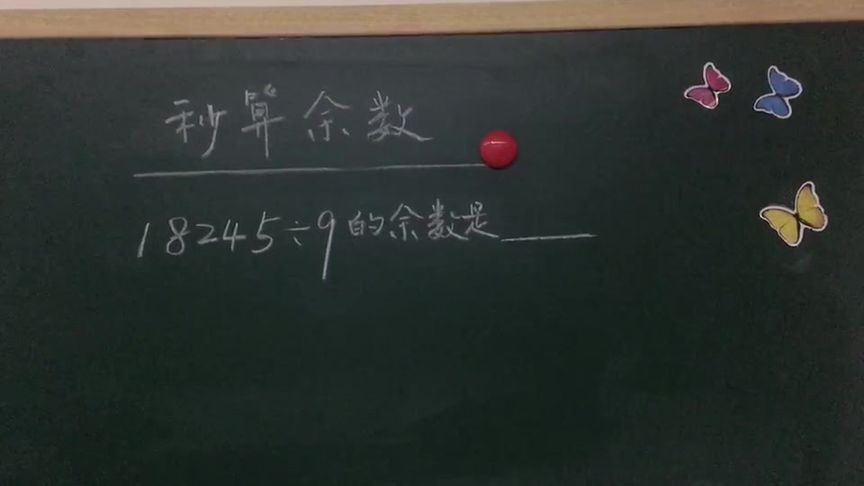 秒算余数
18245÷9的余数是____